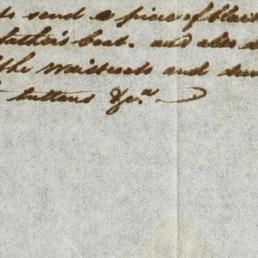 to send a piece of black
father's boat. and also
the waistcoats and
buttons &c.a